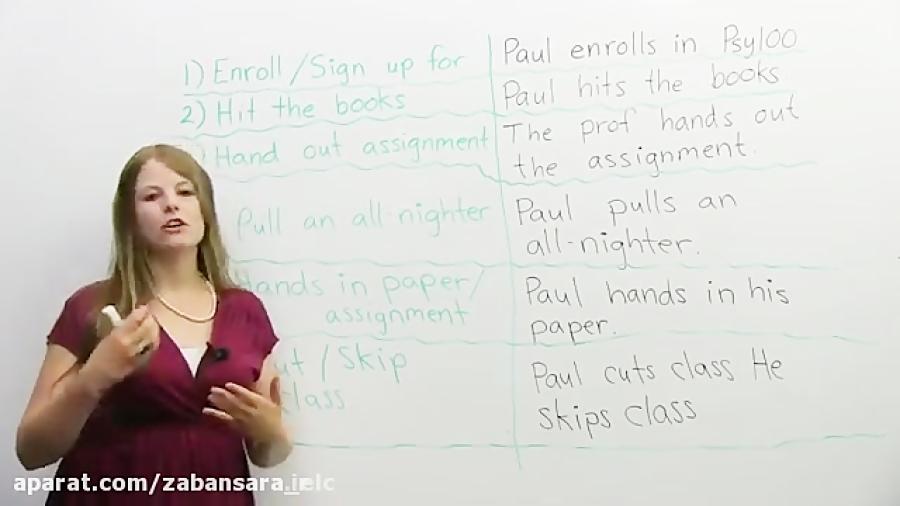 1) Enroll / Sign up for
Paul enrolls in Psy100
2) Hit the books
Paul hits the books
Hand out assignment
The prof hands out
the assignment.
Pull an all-nighter
Paul pulls an
all-nighter.
Hands in paper/
assignment
Paul hands in his
paper.
/ Skip
class
Paul cuts class He
skips class
aparat.com/zabansara_ielc